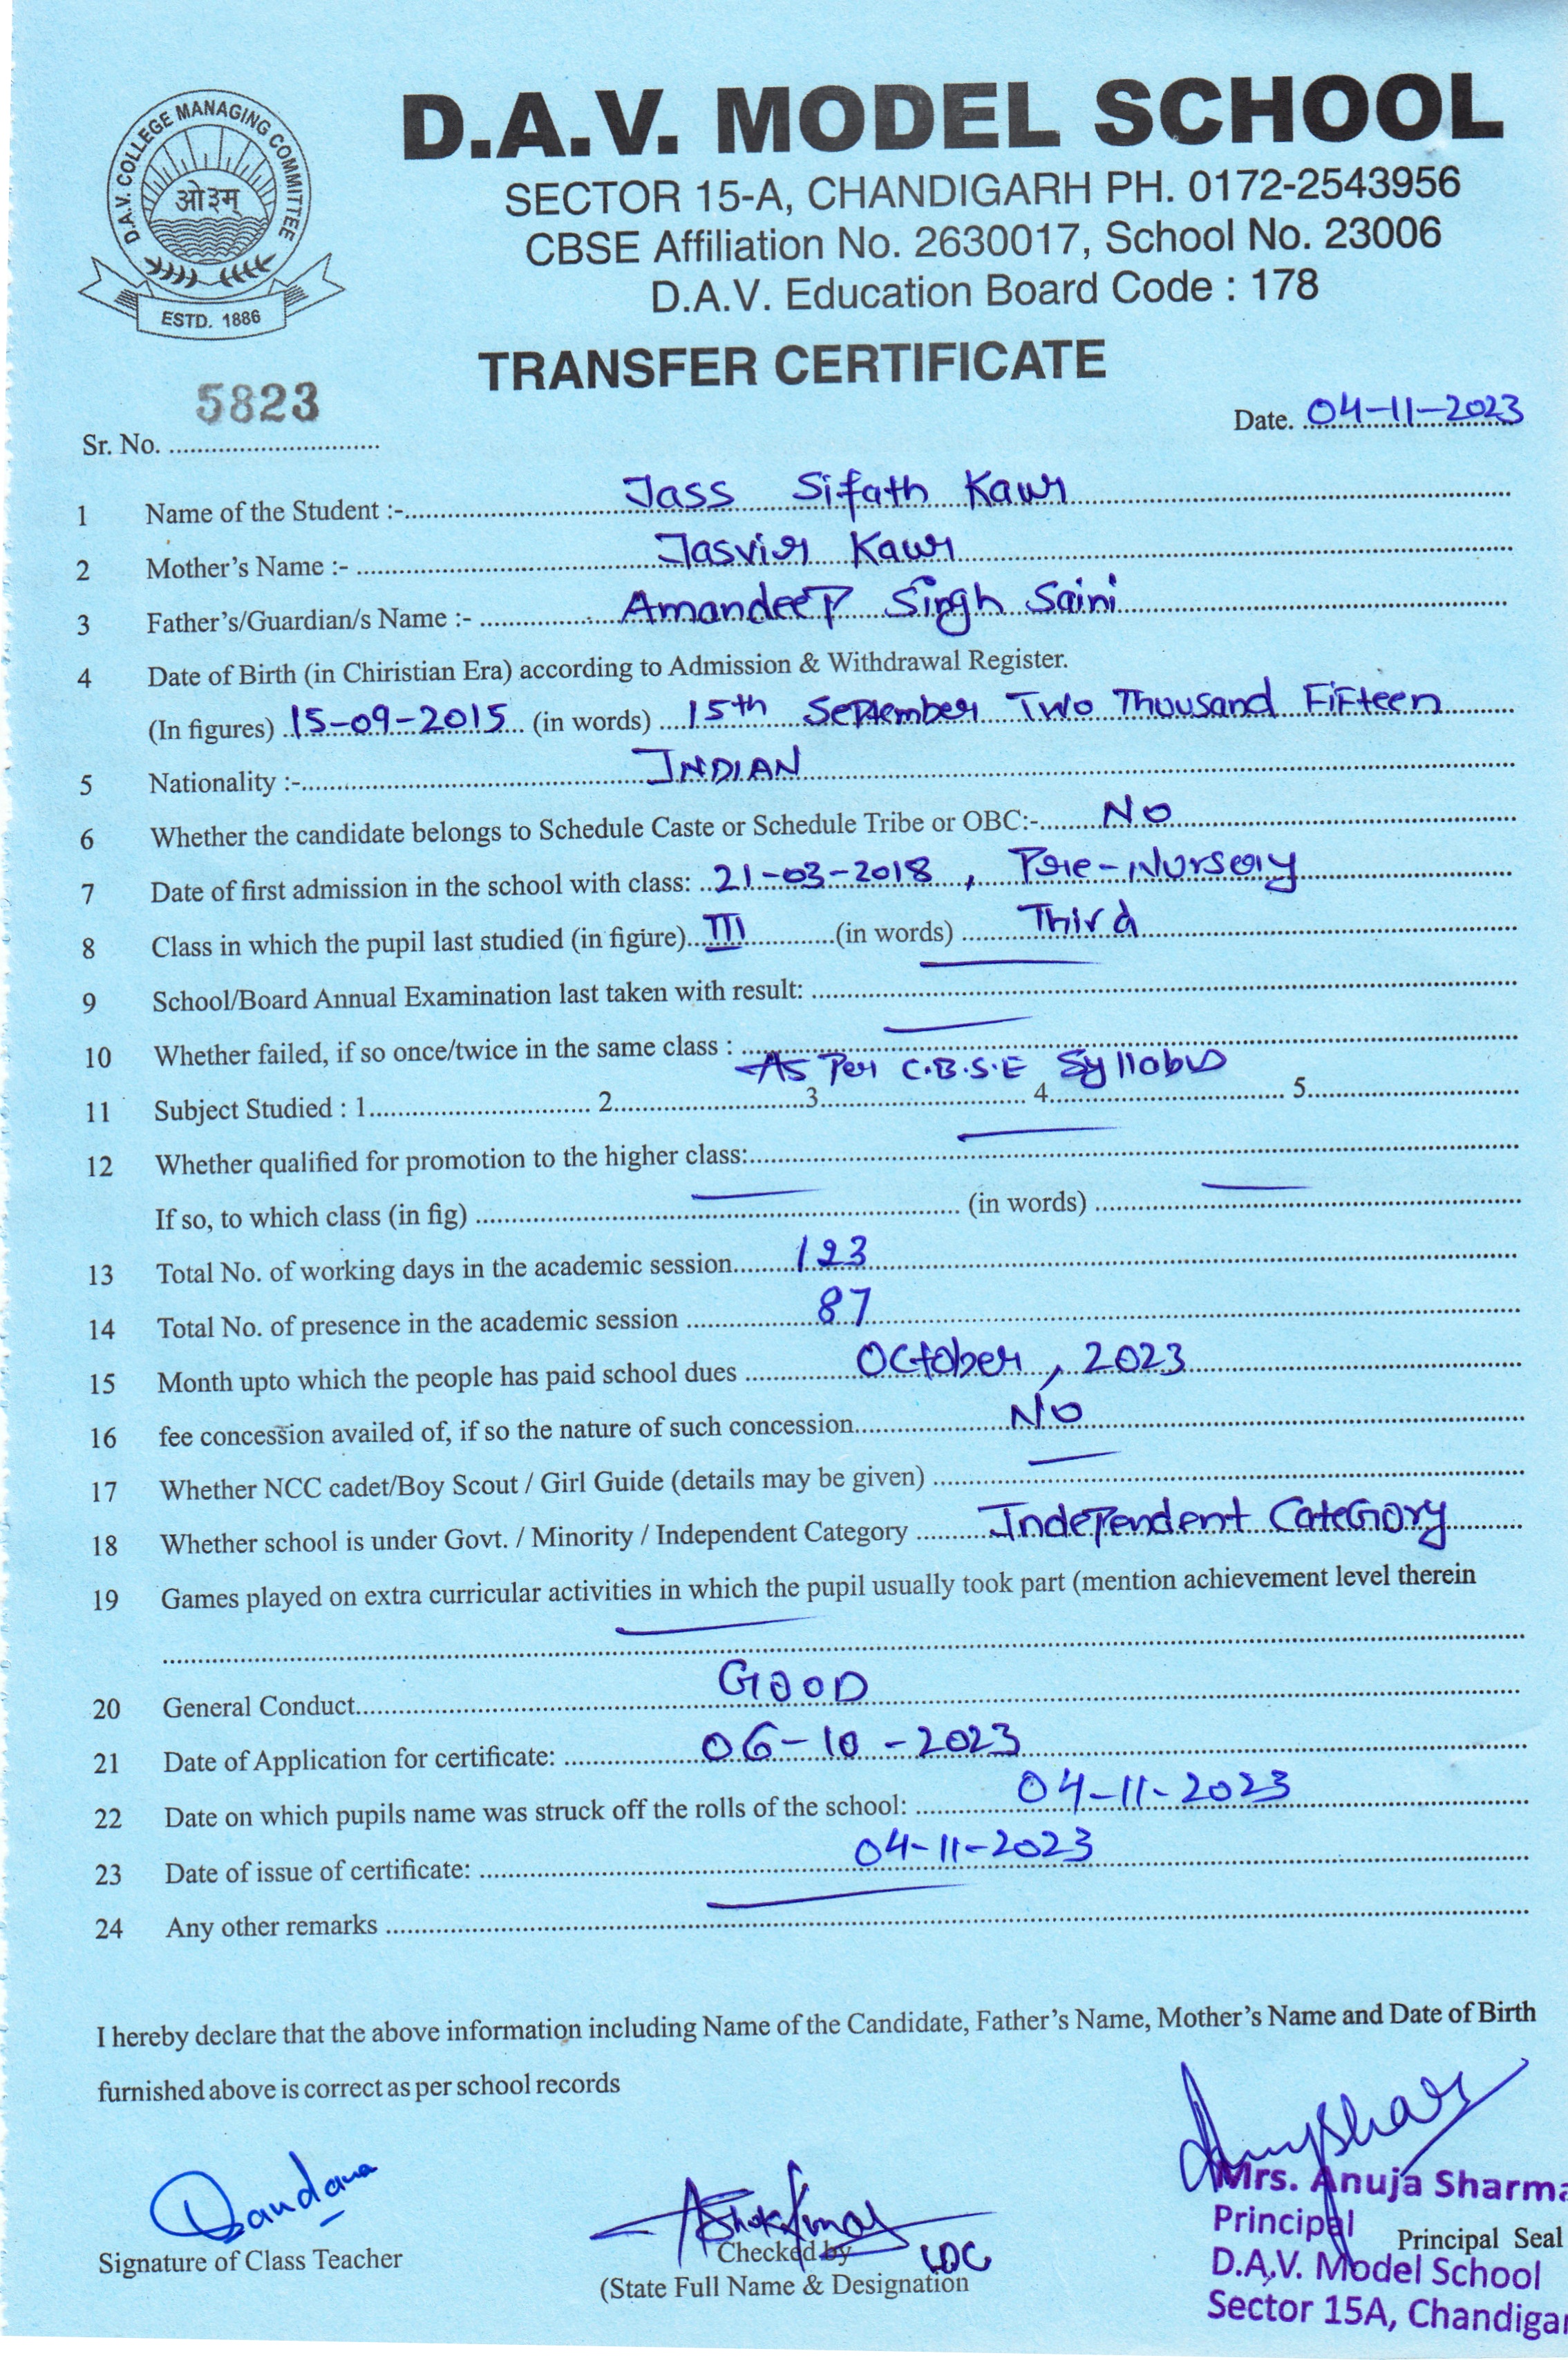 D.A.V. COLLEGE MANAGING COMMITTEE
ओ३म्
ESTD. 1886
D.A.V. MODEL SCHOOL
SECTOR 15-A, CHANDIGARH PH. 0172-2543956
CBSE Affiliation No. 2630017, School No. 23006
D.A.V. Education Board Code : 178
TRANSFER CERTIFICATE
Sr. No. 5823
Date. 04-11-2023
1 Name of the Student :- Jass Sifath Kaur
2 Mother's Name :- Jasvir Kaur
3 Father's/Guardian/s Name :- Amandeep Singh Saini
4 Date of Birth (in Chiristian Era) according to Admission & Withdrawal Register.
(In figures) 15-09-2015 (in words) 15th September Two Thousand Fifteen
5 Nationality :- INDIAN
6 Whether the candidate belongs to Schedule Caste or Schedule Tribe or OBC:- No
7 Date of first admission in the school with class: 21-03-2018, Pre-Nursery
8 Class in which the pupil last studied (in figure) III (in words) Third
9 School/Board Annual Examination last taken with result:
10 Whether failed, if so once/twice in the same class :
As Per C.B.S.E Syllabus
11 Subject Studied : 1 2 3 4 5
12 Whether qualified for promotion to the higher class:
If so, to which class (in fig) (in words)
13 Total No. of working days in the academic session 123
14 Total No. of presence in the academic session 87
15 Month upto which the people has paid school dues October, 2023
16 fee concession availed of, if so the nature of such concession No
17 Whether NCC cadet/Boy Scout / Girl Guide (details may be given)
18 Whether school is under Govt. / Minority / Independent Category Independent Category
19 Games played on extra curricular activities in which the pupil usually took part (mention achievement level therein
20 General Conduct GOOD
21 Date of Application for certificate: 06-10-2023
22 Date on which pupils name was struck off the rolls of the school: 04-11-2023
23 Date of issue of certificate: 04-11-2023
24 Any other remarks
I hereby declare that the above information including Name of the Candidate, Father's Name, Mother's Name and Date of Birth
furnished above is correct as per school records
Signature of Class Teacher
Ashok Kumar
Checked by LDC
(State Full Name & Designation
Mrs. Anuja Sharma
Principal
Principal Seal
D.A.V. Model School
Sector 15A, Chandigar